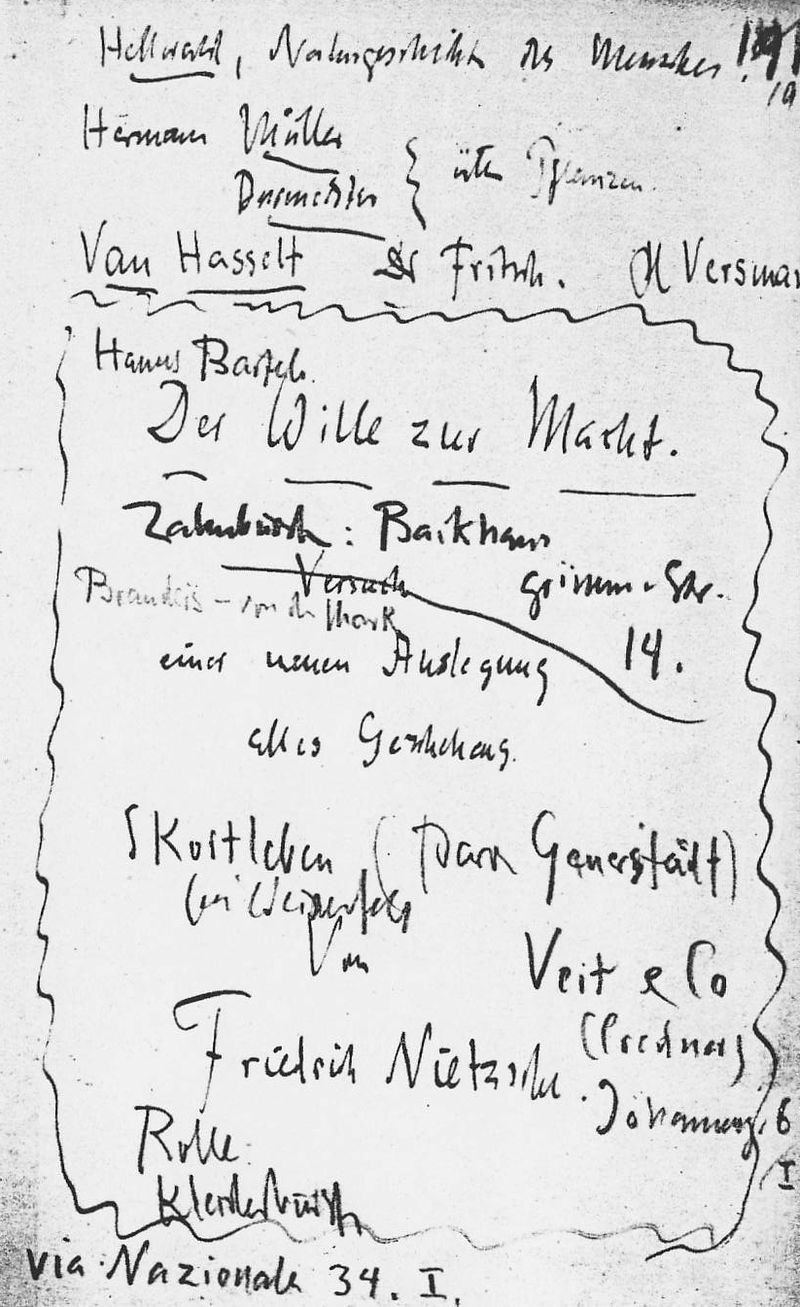 Hellwald, Naturgeschichte des Menschen
Hermann Müller
über Pflanzen.
Van Hasselt Dr Fritsch. H Versman
Hanns Bartsch.
Der Wille zur Macht.
Zahnbürste: Backhaus
Versuch Grimm. Str.
Brandeis – von der Mark
einer neuen Auslegung 14.
alles Geschehens.
Skortleben (Pfarr Generstädt)
bei Weissenfels
Von
Veit & Co
Friedrich Nietzsche.
(Credner)
Johannesg. 6
I
Rolle
Kleiderbürste
via Nazionale 34. I.